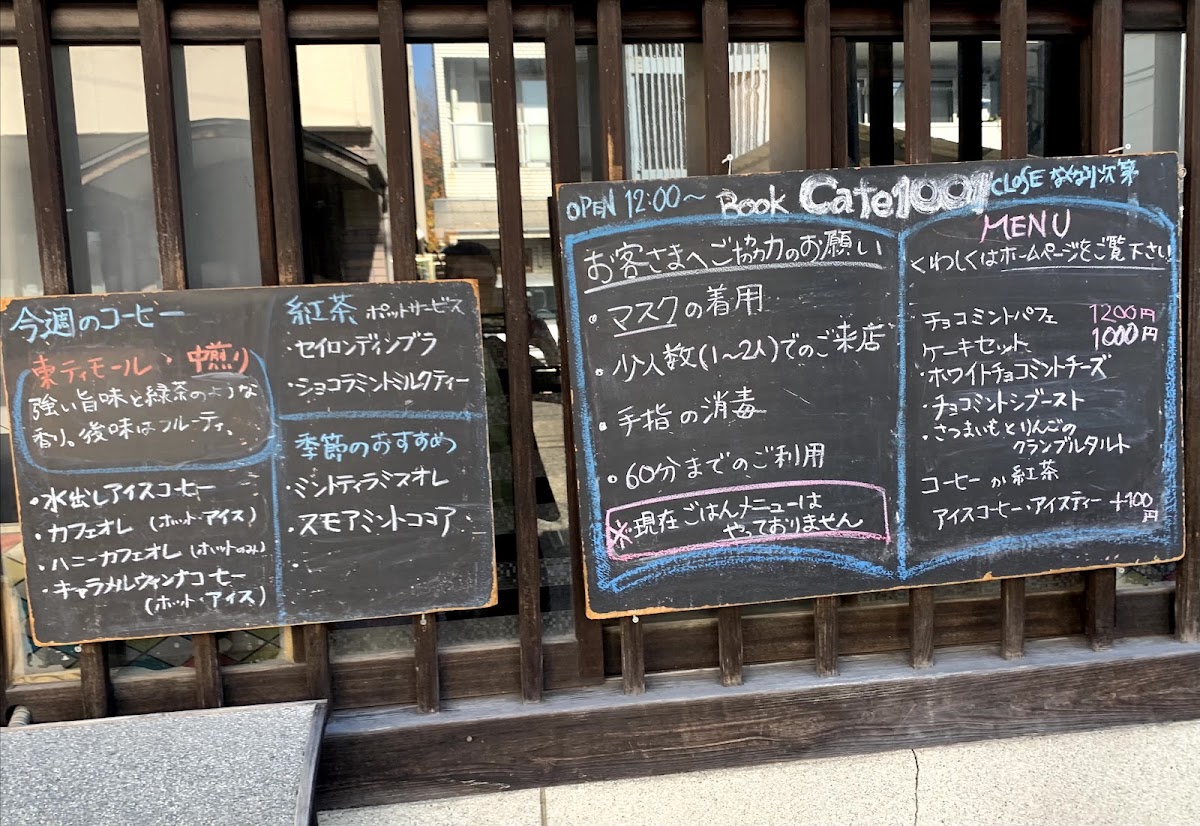 今週のコーヒー
東ティモール・中煎り
強い旨味と緑茶のような
香り。後味はフルーティ、
・水出しアイスコーヒー
・カフェオレ (ホット・アイス)
・ハニーカフェオレ (ホットのみ)
・キャラメルウィンナコーヒー
(ホット・アイス)
紅茶 ポットサービス
・セイロンディンブラ
・ショコラミントミルクティー
季節のおすすめ
・ミントティラミスオレ
・スモアミントココア
・
OPEN 12:00〜 Book Cafe1001 CLOSE なくなり次第
お客さまへご協力のお願い
・マスクの着用
・少人数(1〜2人)でのご来店
・手指の消毒
・60分までのご利用
※現在ごはんメニューは
やっておりません
MENU
くわしくはホームページをご覧下さい
チョコミントパフェ 1200円
ケーキセット 1000円
・ホワイトチョコミントチーズ
・チョコミントシブースト
・さつまいもとりんごの
クランブルタルト
コーヒー か 紅茶
アイスコーヒー・アイスティー +100
円